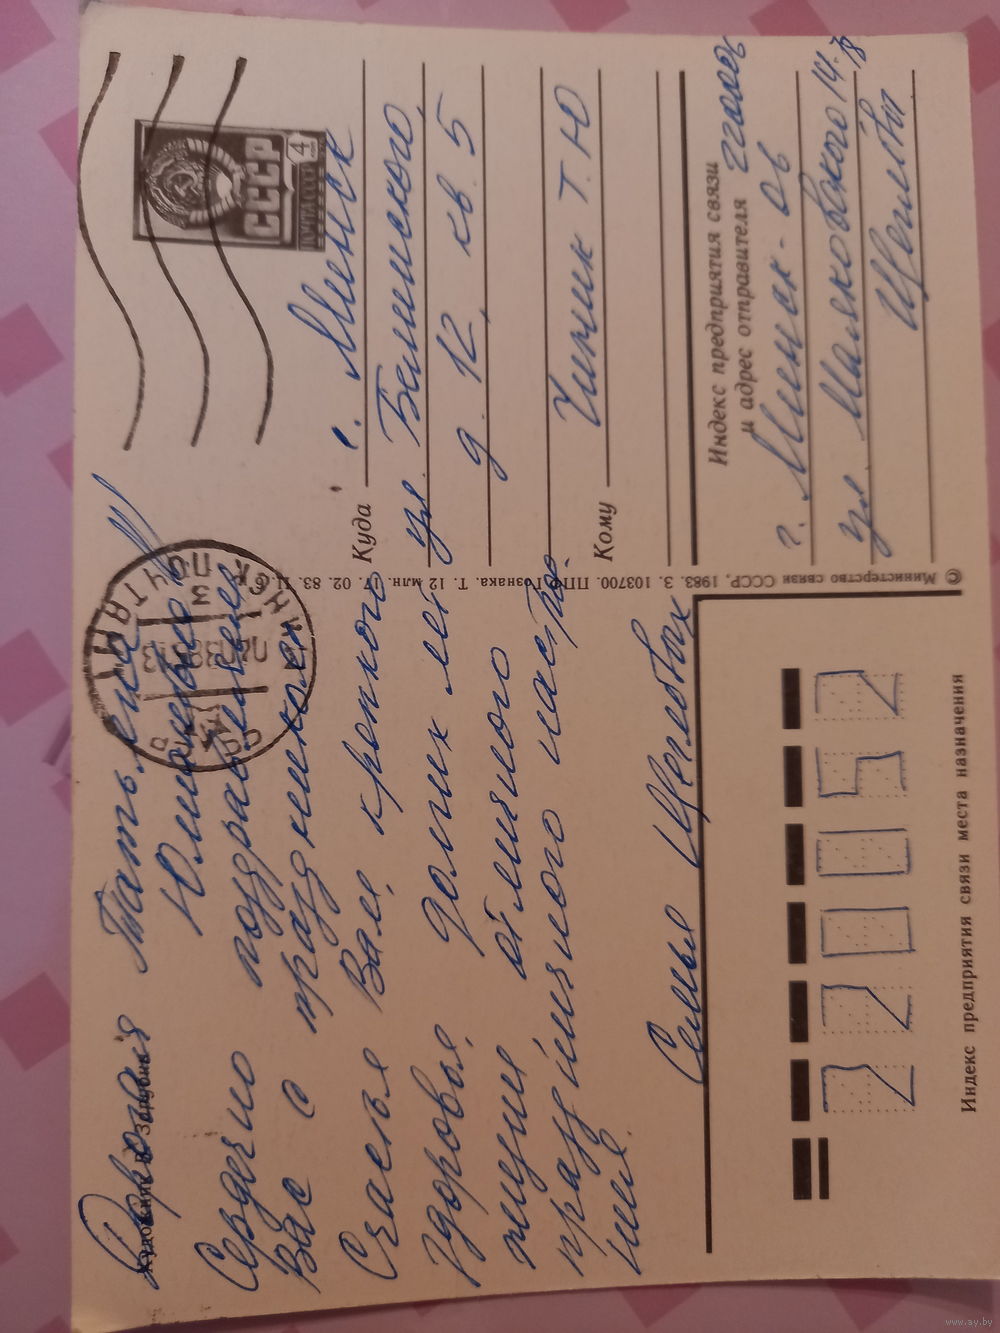 Художник В. Зарубин
Дорогая Татьяна
Юльяновна!!!
Сердечно поздравляем
Вас с праздником
Счастья Вам, крепкого
здоровья, долгих лет
жизни отличного
праздничного настро-
ния.
Семья Щегловых
ПОЧТА СССР
4
МИНСК ПОЧТАМТ
СССР
Куда г. Минск
ул. Белинского,
д. 12, кв. 5
Кому Чипчик Т. Ю
Индекс предприятия связи
и адрес отправителя
г. Минск-
ул. Маяковского 14-
Щегловы
220052
Индекс предприятия связи места назначения
© Министерство связи СССР, 1983. З. 103700. ППФ Гознака. Т. 12 млн. 17. 02. 83. Ц. 6 к.
www.ay.by